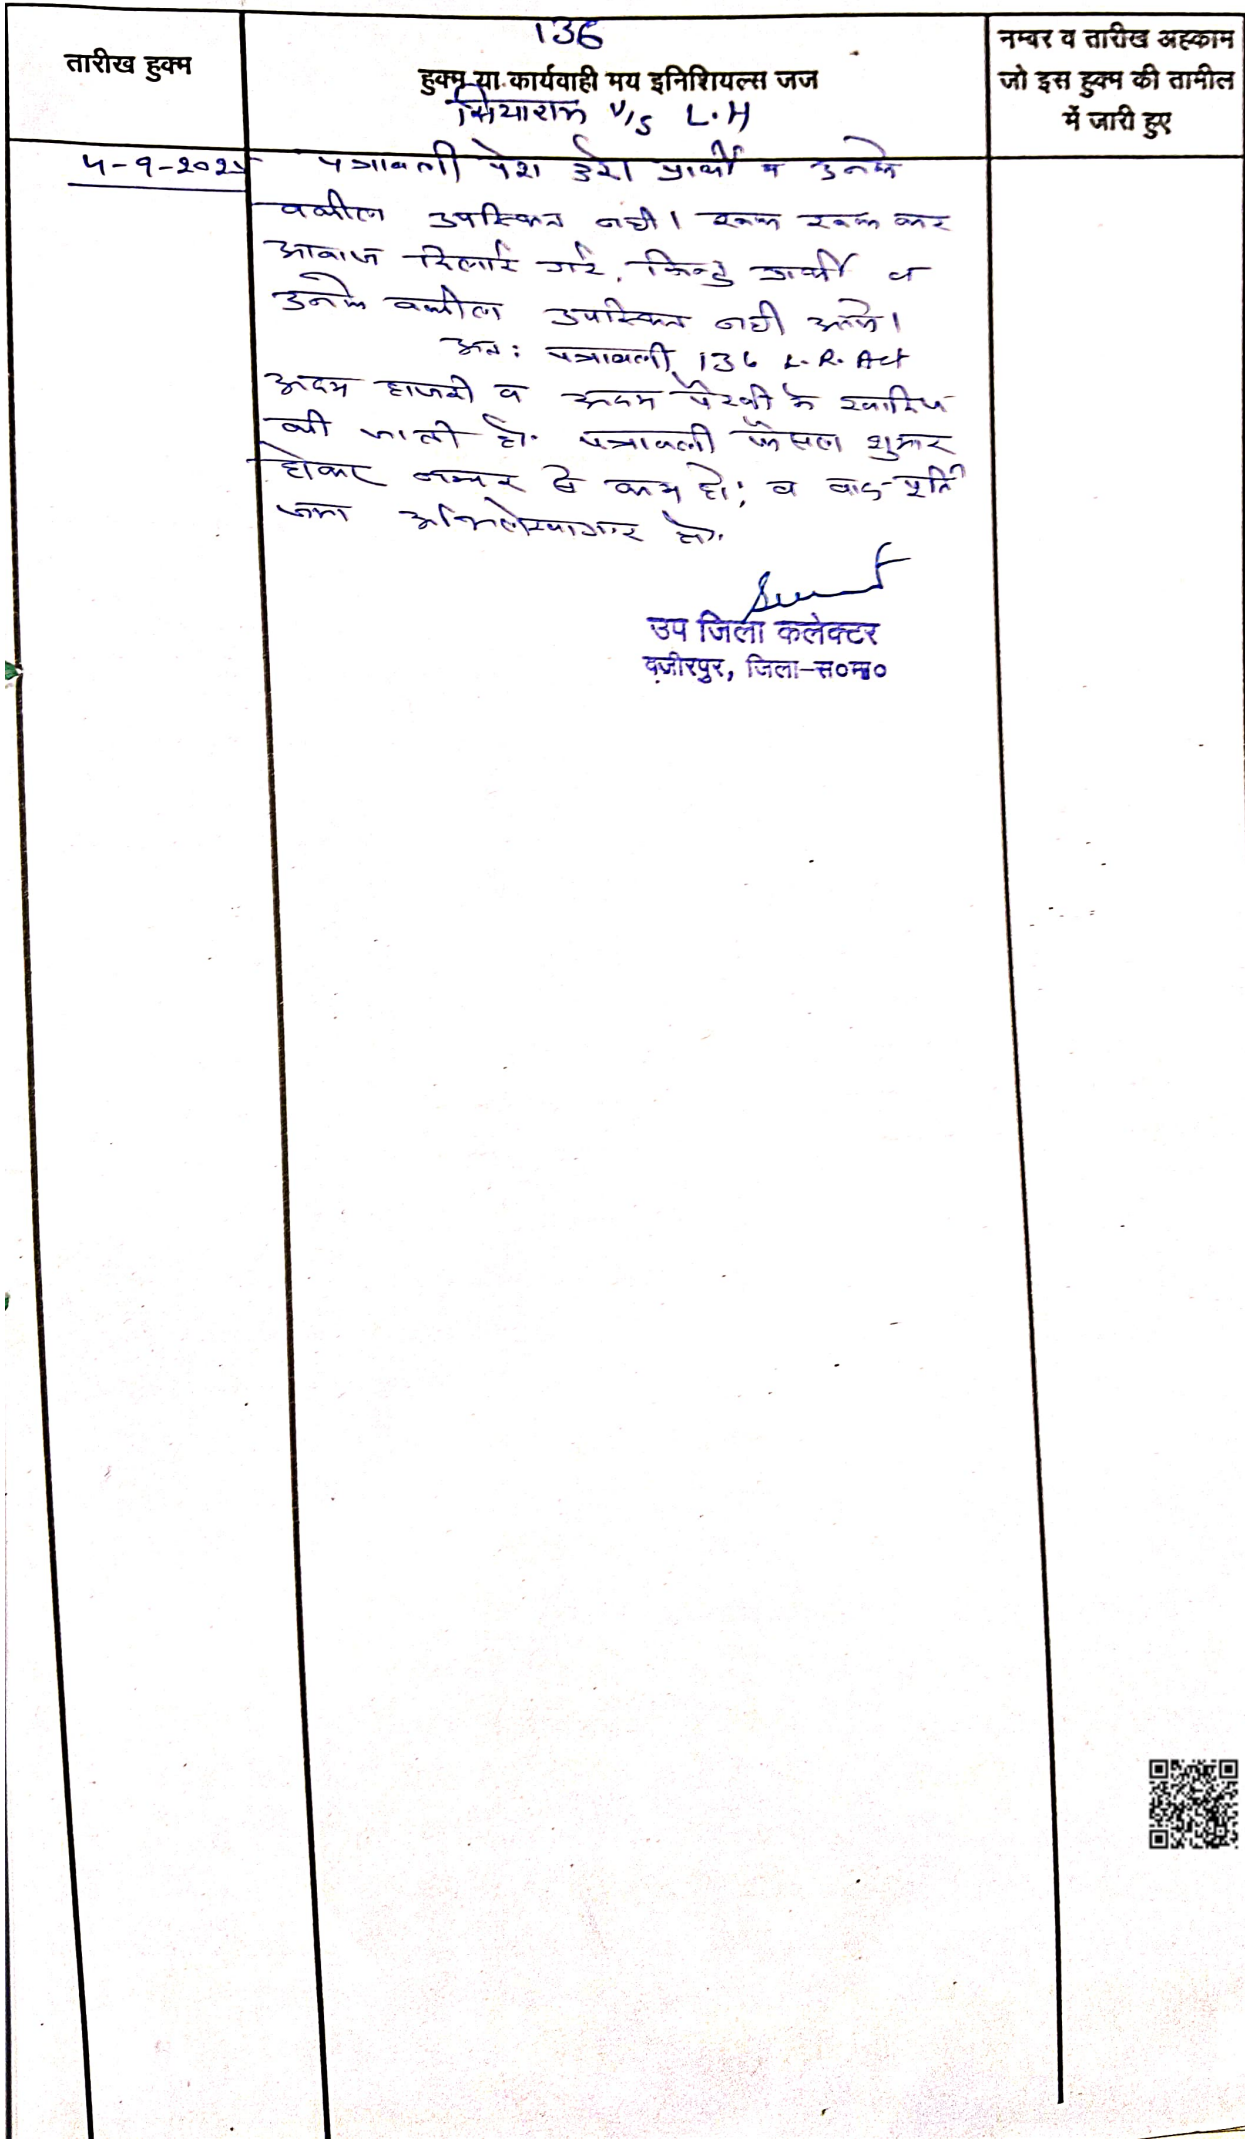 136
तारीख हुक्म
हुक्म या कार्यवाही मय इनिशियल्स जज
नम्बर व तारीख अहकाम
जो इस हुक्म की तामील
में जारी हुए
सियाराम V/S L.H
4-9-2025
पत्रावली पेश हुई। प्रार्थी व उनके
वकील उपस्थित नही। रूक रूक कर
आवाज दिलाई गई, किन्तु प्रार्थी व
उनके वकील उपस्थित नही आये।
अत: पत्रावली 136 L.R. Act
अदम हाजरी व अदम पैरवी मे खारिज
की जाती है। पत्रावली फैसल शुमार
होकर नम्बर से कम हो; व बाद-पूर्ति
जमा अभिलेखागार हो।
उप जिला कलेक्टर
वजीरपुर, जिला-स०मा०